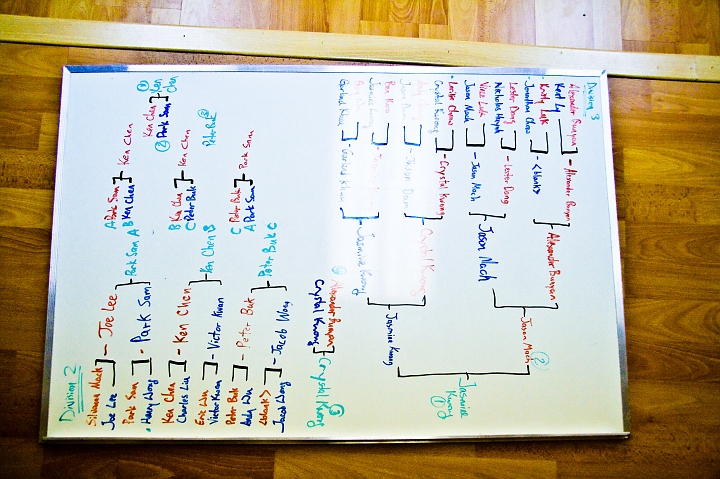 Division 3
Alexander Bunyan
Kent Ly
Kristy Luk
Jonathan Chow
Lester Dang
Nicholas Huynh
Vince Luk
Jason Mach
Louisa Chow
Crystal Kwong
Alexander Bunyan
<blank>
Lester Dang
Jason Mach
Crystal Kwong
Alexander Bunyan
Jason Mach
Crystal Kwong
Jasmine Kwong
Jason Mach
②
Jasmine Kwong
Jasmine Kwong
①
③ Alexander Bunyan
Crystal Kwong
Crystal Kwong
③
Division 2
Silvana Mack
Joe Lee
Park Sam
Henry Wong
Ken Chen
Charles Liu
Eric Wu
Victor Kwan
Peter Buk
Andy Wu
<blank>
Jacob Wong
Joe Lee
Park Sam
Ken Chen
Victor Kwan
Peter Buk
Jacob Wong
Park Sam A
Ken Chen B
Peter Buk C
A Park Sam
B Ken Chen
B Ken Chen
C Peter Buk
C Peter Buk
A Park Sam
Ken Chen
Ken Chen
Park Sam
Ken Chen
② Park Sam
① Ken Chen
③ Peter Buk